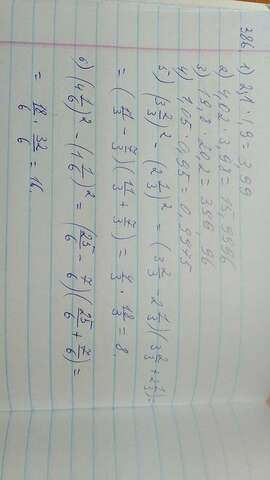 386 1) 2,1 · 1,9 = 3,99
2) 4,02 · 3,98 = 15,9996
3) 19,8 · 20,2 = 399,96
4) 1,05 · 0,95 = 0,9975
5) (3 2/3)² - (2 1/3)² = (3 2/3 - 2 1/3)(3 2/3 + 2 1/3) =
= (11/3 - 7/3)(11/3 + 7/3) = 4/3 · 18/3 = 8.
6) (4 1/6)² - (1 1/6)² = (25/6 - 7/6)(25/6 + 7/6) =
= 18/6 · 32/6 = 16.